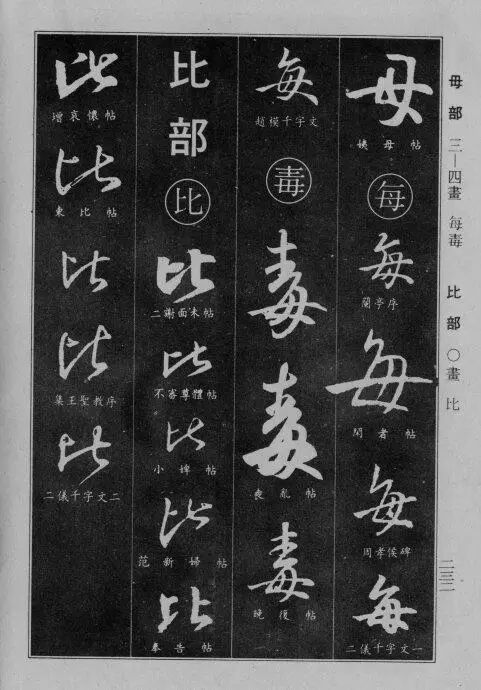 毋部 三—四畫 每毒 比部 〇畫 比
二三二
母
姨母帖
每
每
蘭亭序
每
閑者帖
每
周孝侯碑
每
二儀千字文一
每
趙模千字文
毒
毒
毒
喪亂帖
毒
晚復帖
比部
比
比
二謝面未帖
比
不審尊體帖
比
小婢帖
比
范新婦帖
比
奉告帖
比
增哀懷帖
比
東比帖
比
比
集王聖教序
比
二儀千字文二